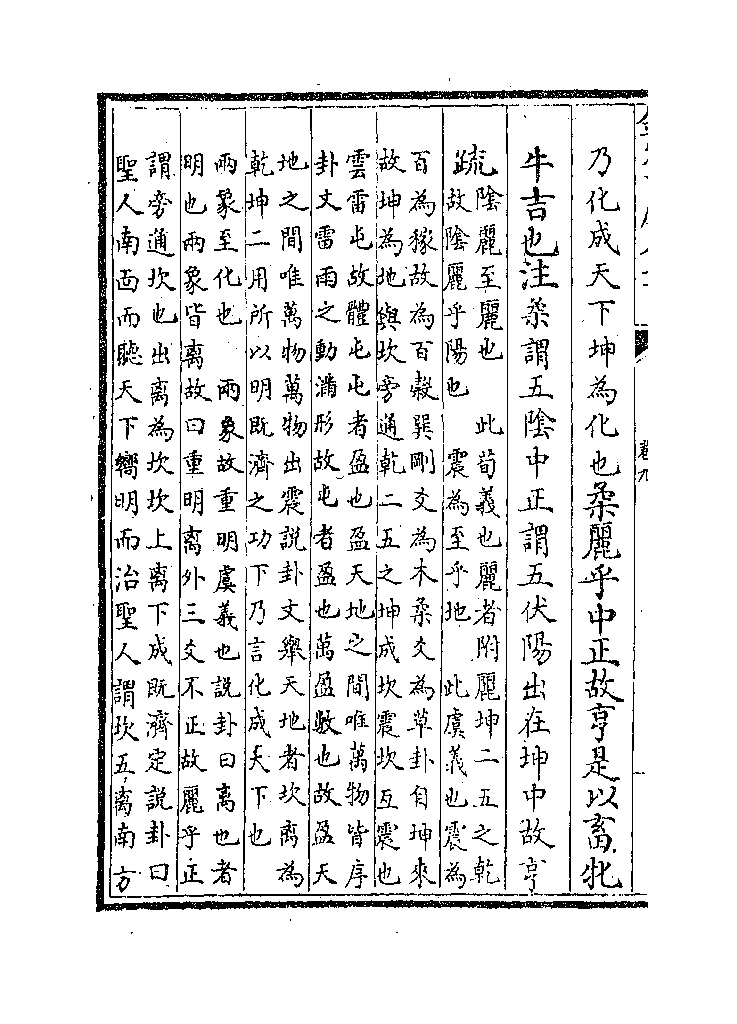 卷九
乃化成天下坤為化也柔麗乎中正故亨是以畜牝
牛吉也注柔謂五陰中正謂五伏陽出在坤中故亨
疏陰麗至麗也　此荀義也麗者附麗坤二五之乾
故陰麗乎陽也　震為至乎地　此虞義也震為
百為稼故為百穀巽剛爻為木柔爻為草卦自坤來
故坤為地與坎旁通乾二五之坤成坎震坎互震也
雲雷屯故體屯屯者盈也盈天地之間唯萬物皆序
卦文雷雨之動滿形故屯者盈也萬盈數也故盈天
地之間唯萬物萬物出震説卦文舉天地者坎离為
乾坤二用所以明既濟之功下乃言化成天下也
兩象至化也　兩象故重明虞義也説卦曰离也者
明也兩象皆离故曰重明离外三爻不正故麗乎正
謂旁通坎也出离為坎坎上离下成既濟定説卦曰
聖人南面而聽天下嚮明而治聖人謂坎五离南方